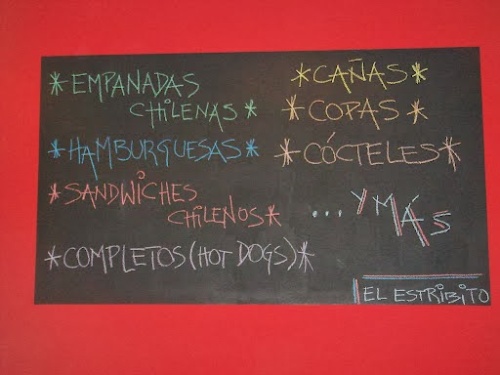 *EMPANADAS
CHILENAS*
*HAMBURGUESAS*
*SANDWICHES
CHILENOS*
*COMPLETOS (HOT DOGS)*
*CAÑAS*
*COPAS*
*CÓCTELES*
...Y MÁS
EL ESTRIBITO